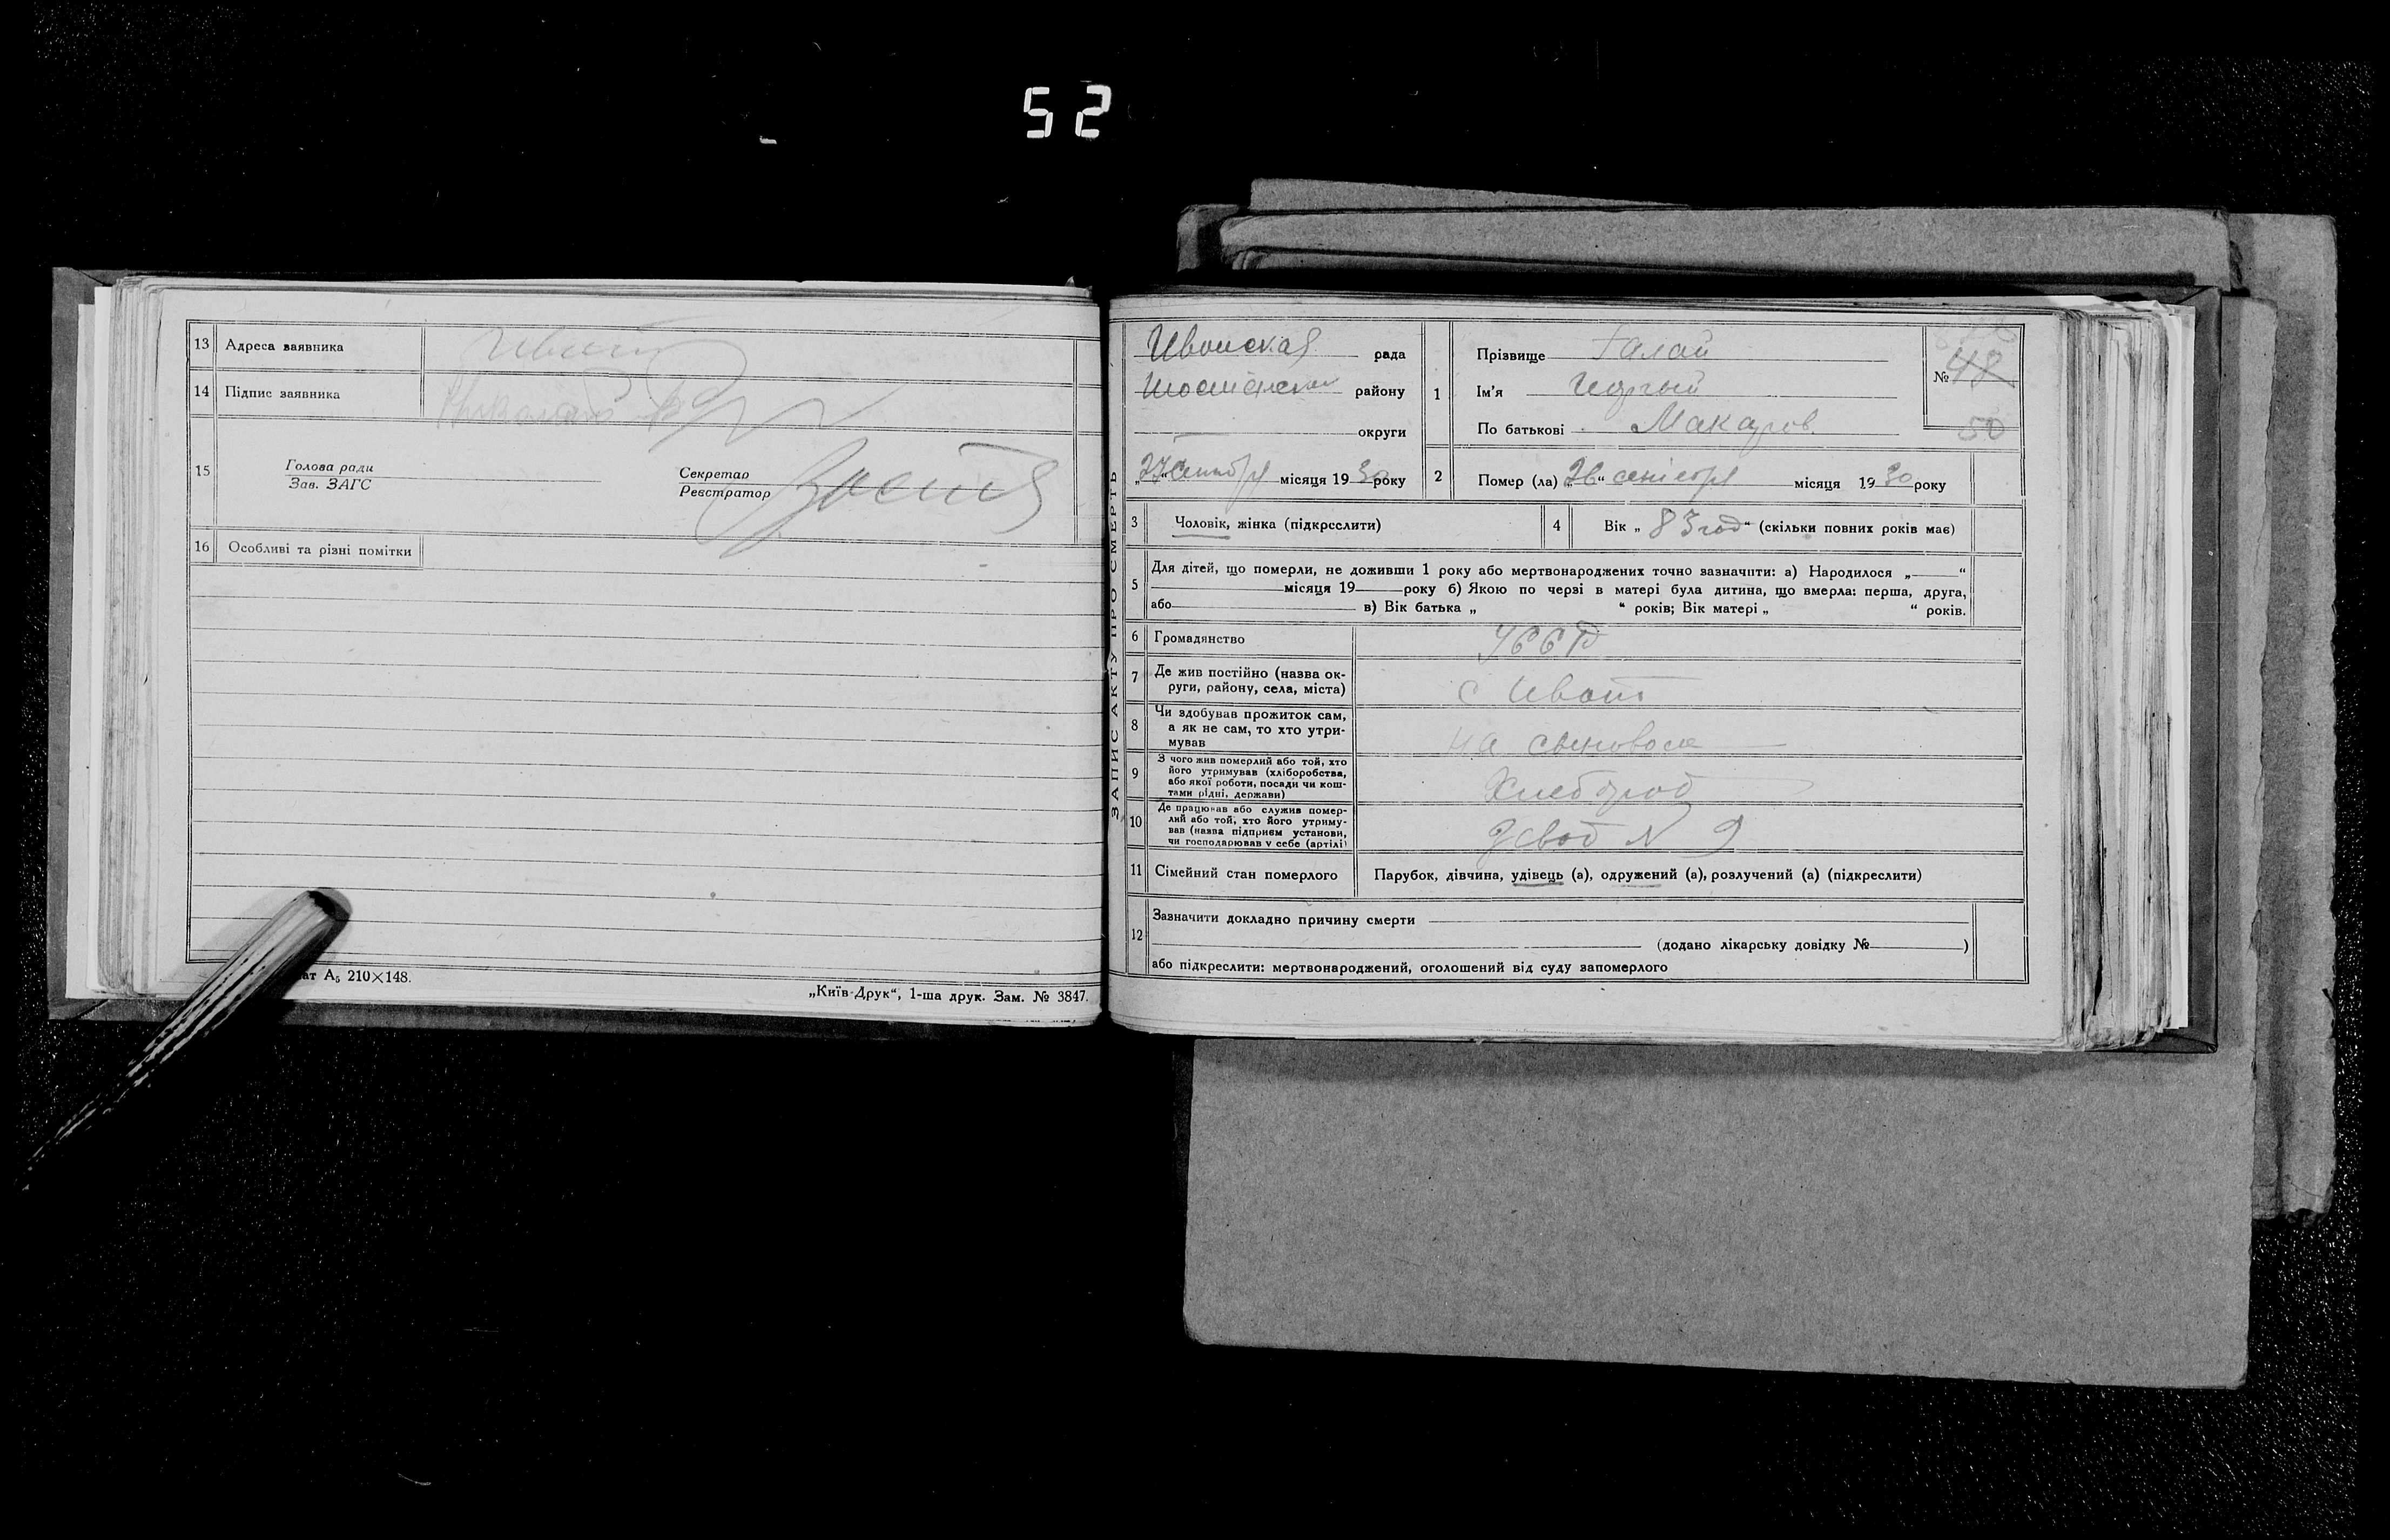 52
13 Адреса заявника Ивот
14 Підпис заявника
15 Голова ради
Зав. ЗАГС
Секретар
Реєстратор
16 Особливі та різні помітки
ат А5 210×148.
„Київ-Друк“, 1-ша друк. Зам. № 3847.
ЗАПИС АКТУ ПРО СМЕРТЬ
Ивотская рада
району
округи
„27“ сентября місяця 1930 року
1 Прізвище Галай
Ім'я
По батькові Макаров.
№ 48
50
2 Помер (ла) „26“ сентября місяця 1930 року
3 Чоловік, жінка (підкреслити)
4 Вік „83 год“ (скільки повних років має)
5 Для дітей, що померли, не доживши 1 року або мертвонароджених точно зазначити: а) Народилося „ “
місяця 19 року б) Якою по черзі в матері була дитина, що вмерла: перша, друга,
або в) Вік батька „ “ років; Вік матері „ “ років.
6 Громадянство УССР
7 Де жив постійно (назва ок-
руги, району, села, міста) с Ивот
8 Чи здобував прожиток сам,
а як не сам, то хто утри-
мував на
9 З чого жив померлий або той, хто
його утримував (хліборобства,
або якої роботи, посади чи кош-
тами рідні, держави) Хлебород
10 Де працював або служив помер-
лий або той, хто його утриму-
вав (назва підприєм установи,
чи господарював у себе (артілі) Завод № 9
11 Сімейний стан померлого Парубок, дівчина, удівець (а), одружений (а), розлучений (а) (підкреслити)
12 Зазначити докладно причину смерти
(додано лікарську довідку № )
або підкреслити: мертвонароджений, оголошений від суду запомерлого